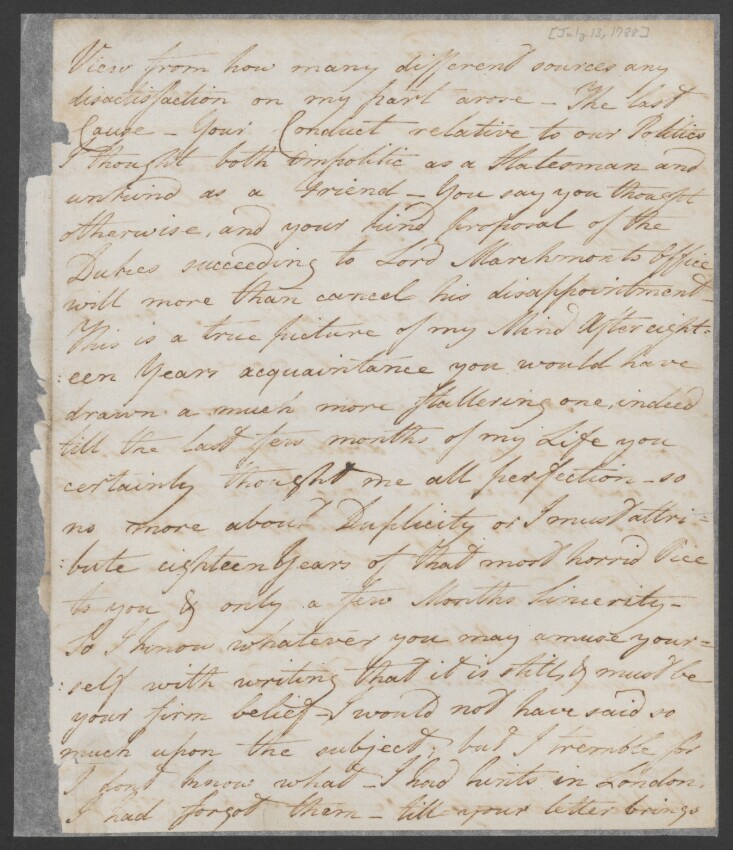 [July 13, 1788]
View from how many different sources any
disactisfaction on my part arose – The last
Cause – Your Conduct relative to our Politics
I thought both impolitic as a Statesman and
unkind as a Friend – You say you thought
otherwise, and your kind proposal of the
Dukes succeeding to Lord Marchmonts Office
will more than cancel his disappointment –
This is a true picture of my Mind After eight=
:een Years acquaintance you would have
drawn a much more flattering one, indeed
till the last few months of my Life you
certainly thought me all perfection – so
no more about Duplicity or I must attri=
:bute eighteen Years of that most horrid Vice
to you & only a few Months Sincerity –
So I know whatever you may amuse your=
:self with writing that it is still, & must be
your firm belief – I would not have said so
much upon the subject, but I tremble for
I don't know what – I had hints in London,
I had forgot them – till your letter brings